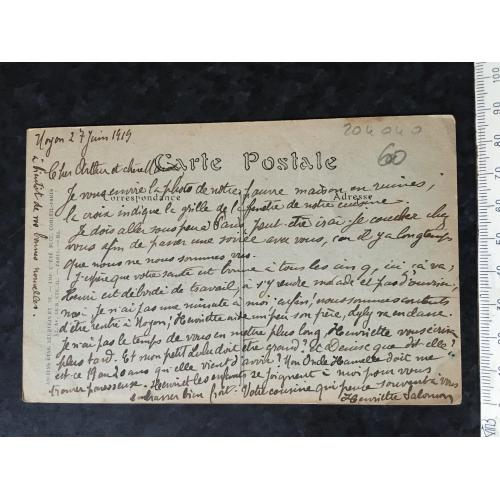 204040
60
Noyon 27 Juin 1919
Carte Postale
Correspondance
Adresse
Cher Arthur et chère
Je vous envoie la photo de notre pauvre maison en ruines,
la croix indique la grille de la fenêtre de notre cuisine.
Je dois aller sous peu à Paris, peut-être irai-je coucher chez
vous afin de passer une soirée avec vous, car il y a longtemps
que nous ne nous sommes vus.
J'espère que votre santé est bonne à tous les cinq, ici ça va;
Henri est débordé de travail, à s'y rendre malade et pas d'ouvriers,
moi je n'ai pas une minute à moi; enfin, nous sommes contents
d'être rentré à Noyon; Henriette aide un peu son frère, va en classe.
Je n'ai pas le temps de vous en mettre plus long, Henriette vous écrira
plus tard. Et mon petit Lulu doit être grand? Et Denise que dit-elle?
est-ce 19 ou 20 ans qu'elle vient d'avoir? Mon Oncle doit me
trouver paresseuse. Henri et les enfants se joignent à moi pour vous
embrasser bien fort. Votre cousine qui pense souvent à vous
Henriette Salomon
à bientôt de vos bonnes nouvelles.